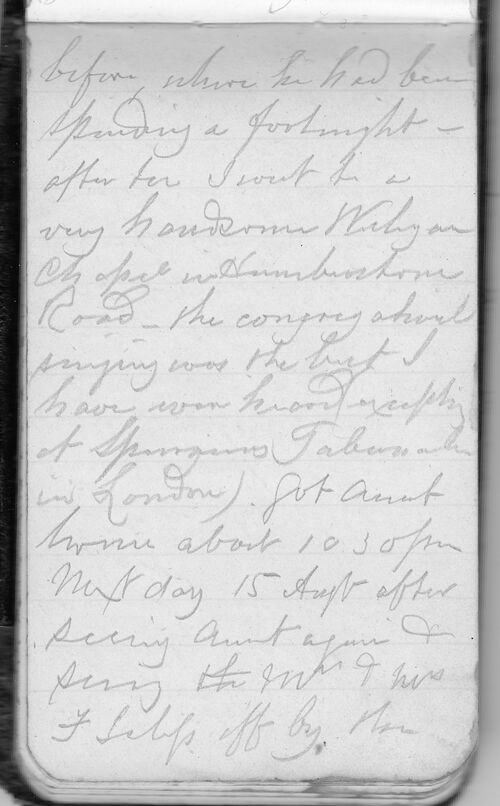 before, where he had been
spending a fortnight —
after tea I went to a
very handsome Wesleyan
Chapel in Humberstone
Road — the congregational
singing was the best I
have ever heard (excepting
at Spurgeons Tabernacle
in London). Got Aunt
home about 10 30 pm
Next day 15 Augt after
seeing Aunt again &
seeing the Mr & Mrs
F off by the